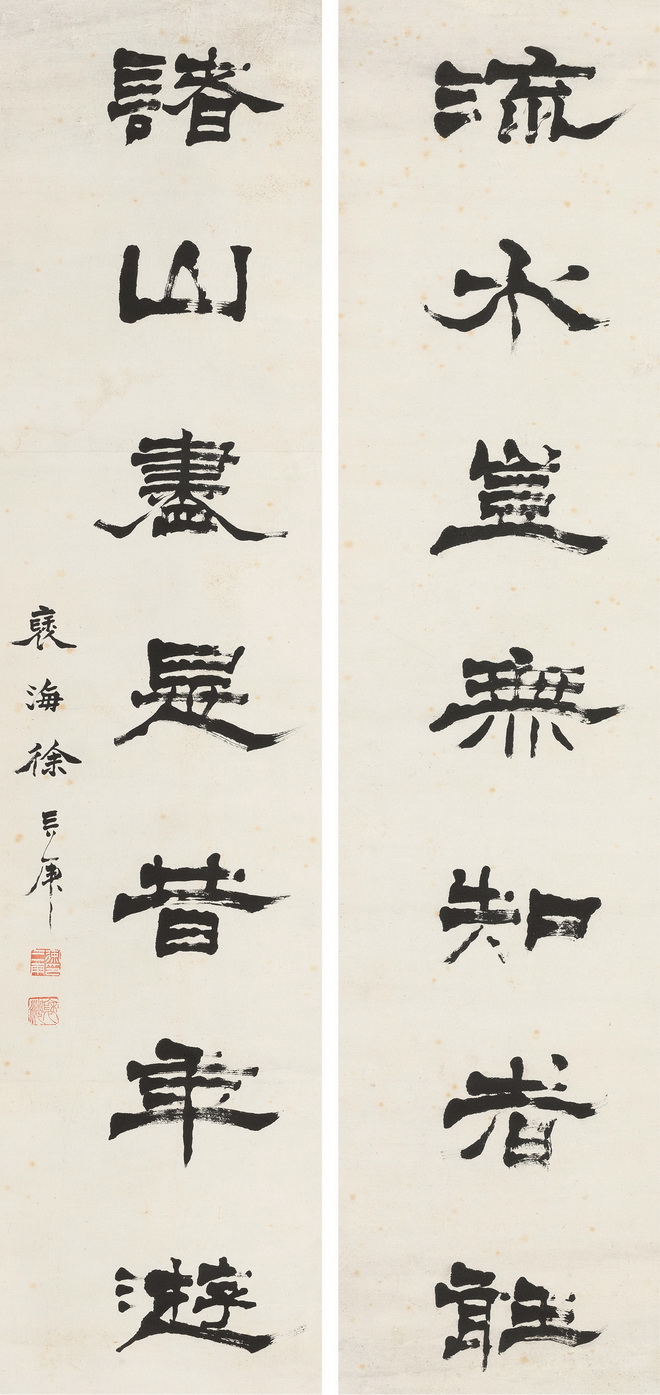 流水豈無知者聽
諸山盡是昔年遊
褎海徐三庚